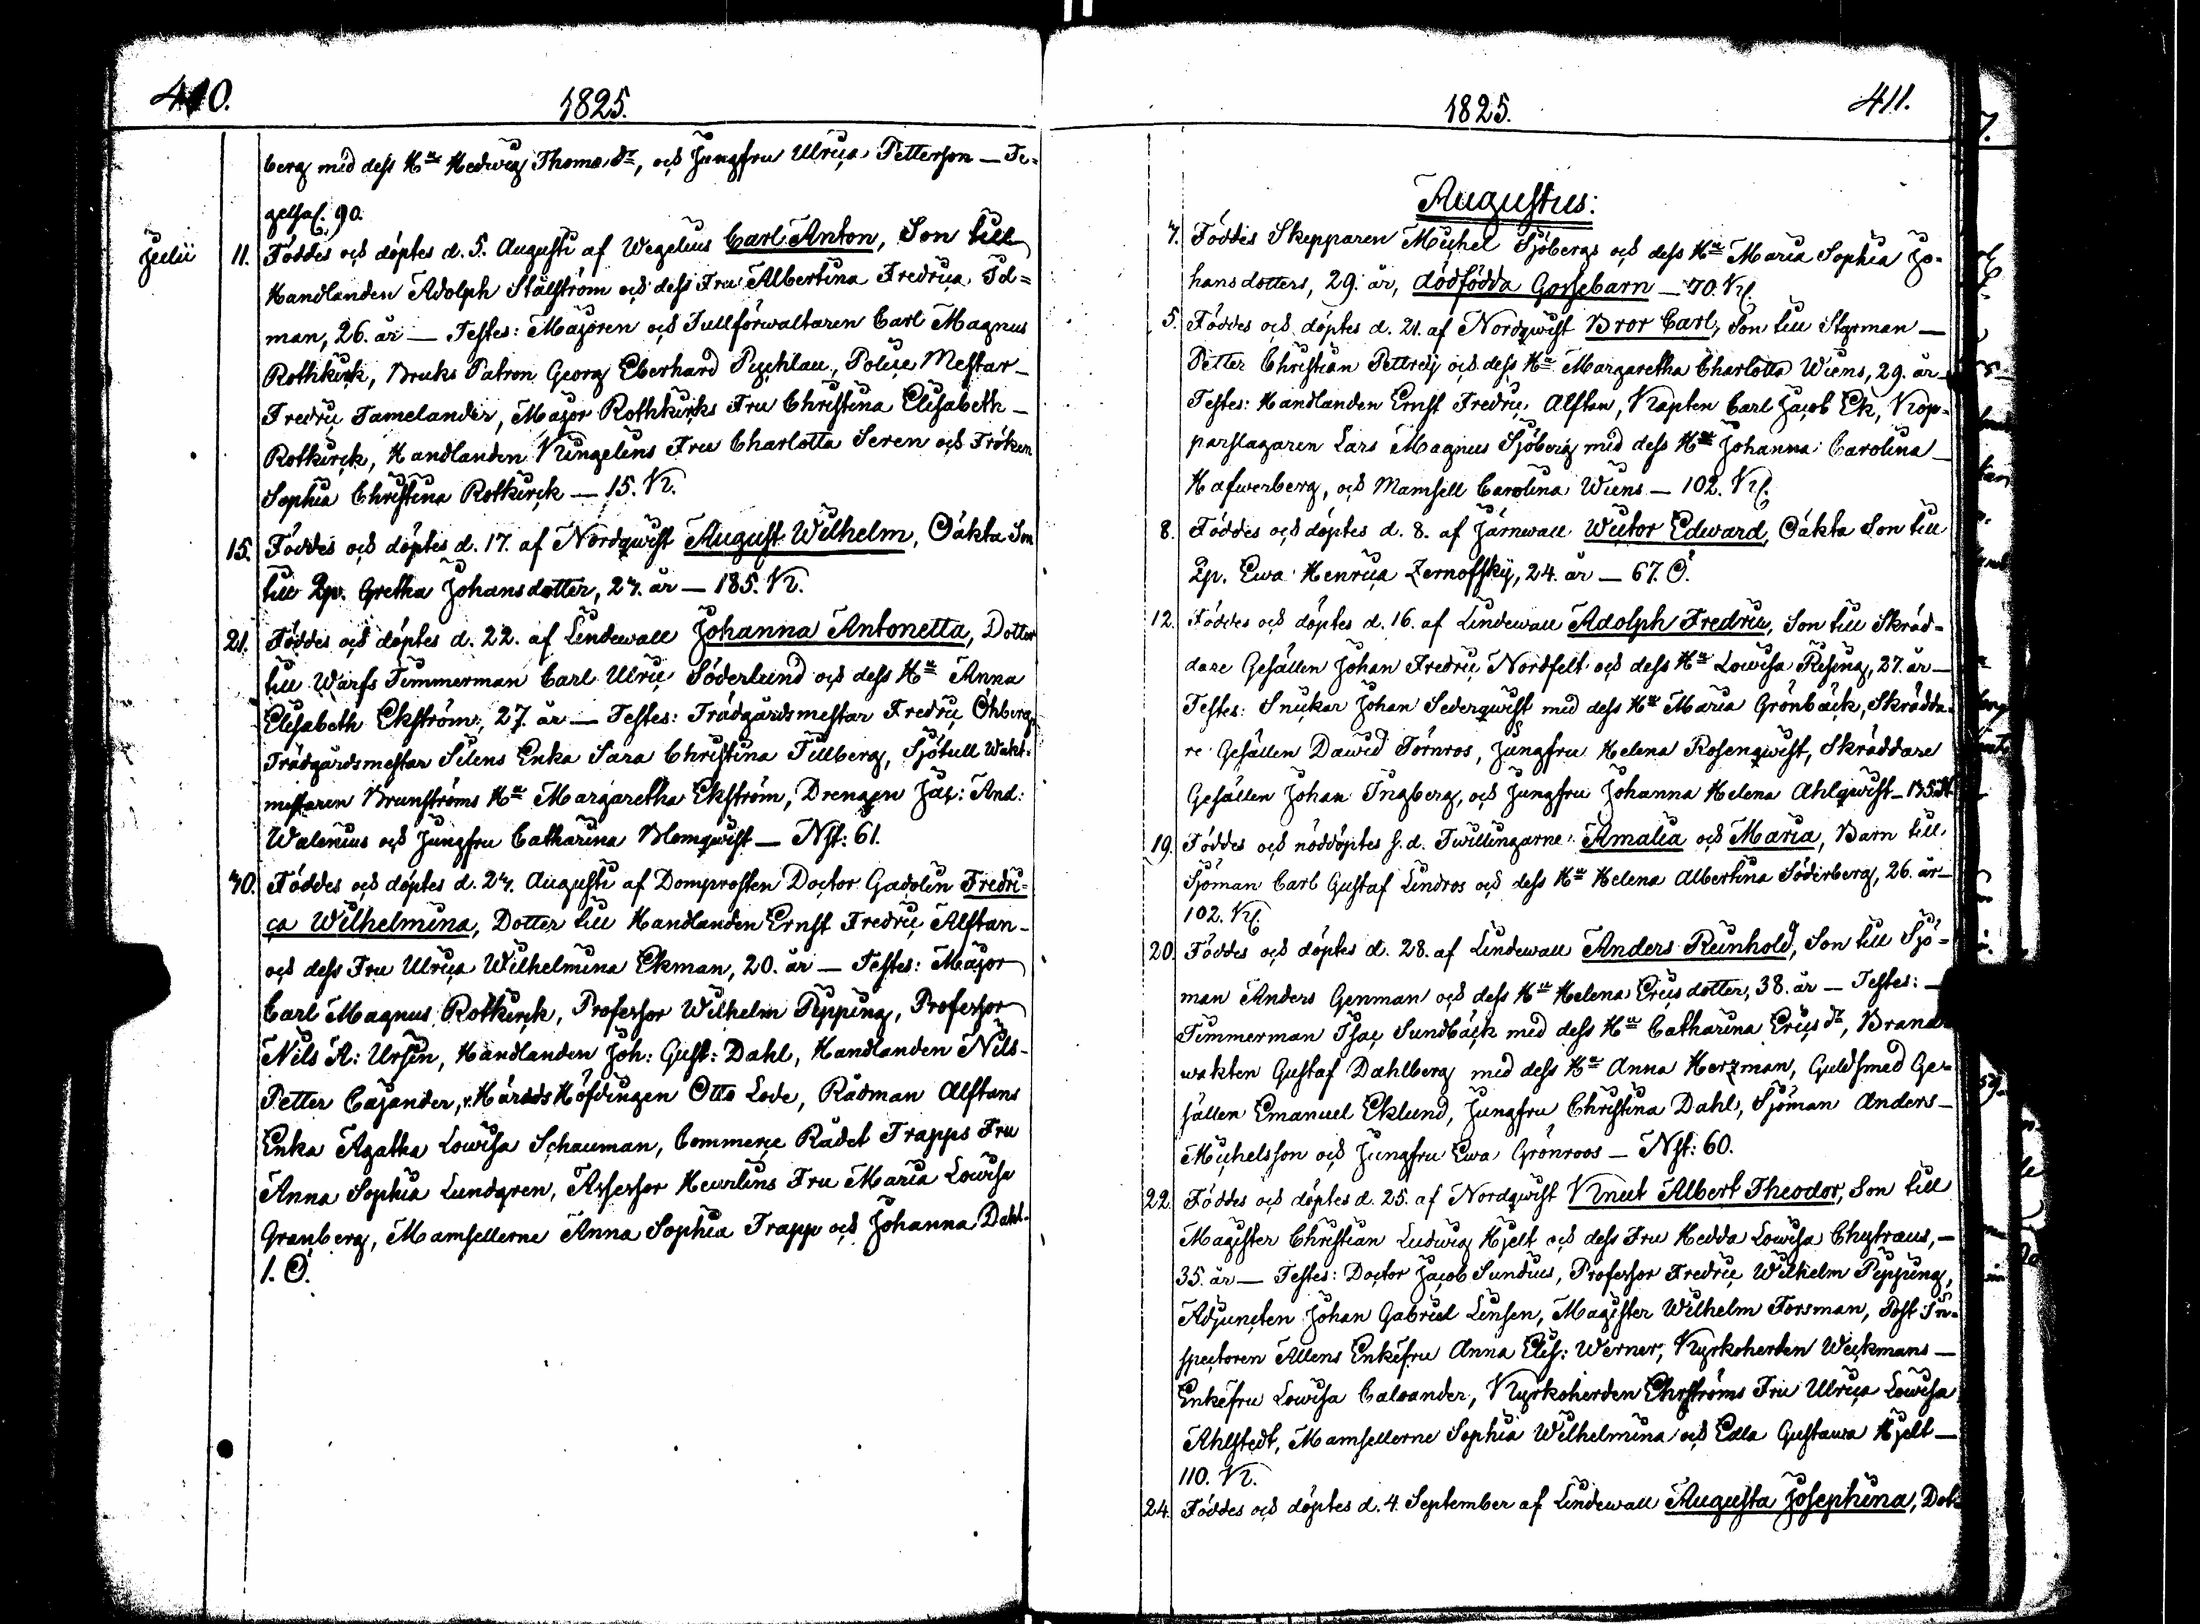 410.
1825.
berg med dess H:u Hedwig Thomæ d:r, och Jungfru Ulrica Petterson — Te-
gelsal. 90.
Julii 11. Föddes och döptes d. 5. Augusti af Wegelius Carl Anton, Son till
Handlanden Adolph Stålström och dess Fru Albertina Fredrica Id=
man, 26. år — Testes: Majoren och Tullförwaltaren Carl Magnus
Rothkirk, Bruks Patron Georg Eberhard Pychlau, Police Mestar —
Fredric Tamelander, Major Rothkirks Fru Christina Elisabeth —
Rotkirck, Handlanden Kingelins Fru Charlotta Seren och Fröken
Sophia Christina Rotkirck — 15. K.
15. Föddes och döptes d. 17. af Nordqwist August Wilhelm, Oäkta Son
till Qp. Gretha Johansdotter, 27. år — 185. K.
21. Föddes och döptes d. 22. af Lindewall Johanna Antonetta, Dotter
till Warfs Timmerman Carl Ulric Söderlund och dess H:u Anna
Elisabeth Ekström, 27. år — Testes: Trädgårdsmestar Fredric Öhberg,
Trädgårdsmestar Silens Enka Sara Christina Tillberg, Sjötull Wakt-
mestaren Brunströms H:u Margaretha Ekström, Drengen Jac: And:
Walenius och Jungfru Catharina Blomqwist — Nst: 61.
30. Föddes och döptes d. 27. Augusti af Domprosten Doctor Gadolin Fredri=
ca Wilhelmina, Dotter till Handlanden Ernst Fredric Alfstan —
och dess Fru Ulrica Wilhelmina Ekman, 20. år — Testes: Major
Carl Magnus Rotkirck, Professor Wilhelm Pipping, Professor
Nils A: Ursin, Handlanden Joh: Gust: Dahl, Handlanden Nils —
Petter Cajander, v. Härads Höfdingen Otto Lode, Rådman Alfstans
Enka Agatha Lowisa Schauman, Commerce Rådet Trapps Fru
Anna Sophia Lundgren, Assessor Heurlins Fru Maria Lowisa
Granberg, Mamsellerne Anna Sophia Trapp och Johanna Dahl-
1. Ö.
1825.
411.
Augustus:
7. Föddes Skepparen Michel Sjöbergs och dess H:u Maria Sophia Jo-
hansdotters, 29. år, dödfödda Gossebarn — 70. Kl.
5. Föddes och döptes d. 21. af Nordqwist Bror Carl, Son till Styrman —
Petter Christian Pettrelj och dess H:u Margaretha Charlotta Wiens, 29. år —
Testes: Handlanden Ernst Fredric Alfstan, Kapten Carl Jacob Ek, Kop-
parslagaren Lars Magnus Sjöberg med dess H:u Johanna Carolina —
Hafwerberg, och Mamsell Carolina Wiens — 102. Kl.
8. Föddes och döptes d. 8. af Järnwall Wictor Edward, Oäkta Son till
Qp. Ewa Henrica Zernoffskij, 24. år — 67. Ö.
12. Föddes och döptes d. 16. af Lindewall Adolph Fredric, Son till Skräd-
dare Gesällen Johan Fredric Nordfelt och dess H:u Lowisa Rising, 27. år —
Testes: Snickar Johan Sederqwist med dess H:u Maria Grönbäck, Skrädda-
re Gesällen Dawid Törnros, Jungfru Helena Rosenqwist, Skräddare
Gesällen Johan Ingberg, och Jungfru Johanna Helena Ahlqwist —
19. Föddes och nöddöptes s. d. Twillingarne Amalia och Maria, Barn till
Sjöman Carl Gustaf Lindros och dess H:u Helena Albertina Söderberg, 26. år —
102. Kl.
20. Föddes och döptes d. 28. af Lindewall Anders Reinhold, Son till Sjö-
man Anders Genman och dess H:u Helena Ericsdotter, 38. år — Testes: —
Timmerman Isac Sundbäck med dess H:u Catharina Erics d:r, Brand-
wakten Gustaf Dahlberg med dess H:u Anna Herzman, Guldsmed Ge-
sällen Emanuel Eklund, Jungfru Christina Dahl, Sjöman Anders —
Michelsson och Jungfru Ewa Grönroos — Nst: 60.
22. Föddes och döptes d. 25. af Nordqwist Knut Albert Theodor, Son till
Magister Christian Ludwig Hjelt och dess Fru Hedda Lowisa Chytræus, —
35. år — Testes: Doctor Jacob Sundius, Professor Fredric Wilhelm Pipping,
Adjuncten Johan Gabriel Linsen, Magister Wilhelm Forsman, Post In-
spectoren Allens Enkefru Anna Elis: Werner, Kyrkoherden Weckmans —
Enkefru Lowisa Caloander, Kyrkoherden Ehrströms Fru Ulrica Lowisa
Ahlstedt, Mamsellerne Sophia Wilhelmina och Edla Gustawa Hjelt —
110. K.
24. Föddes och döptes d. 4. September af Lindewall Augusta Josephina, Dot-